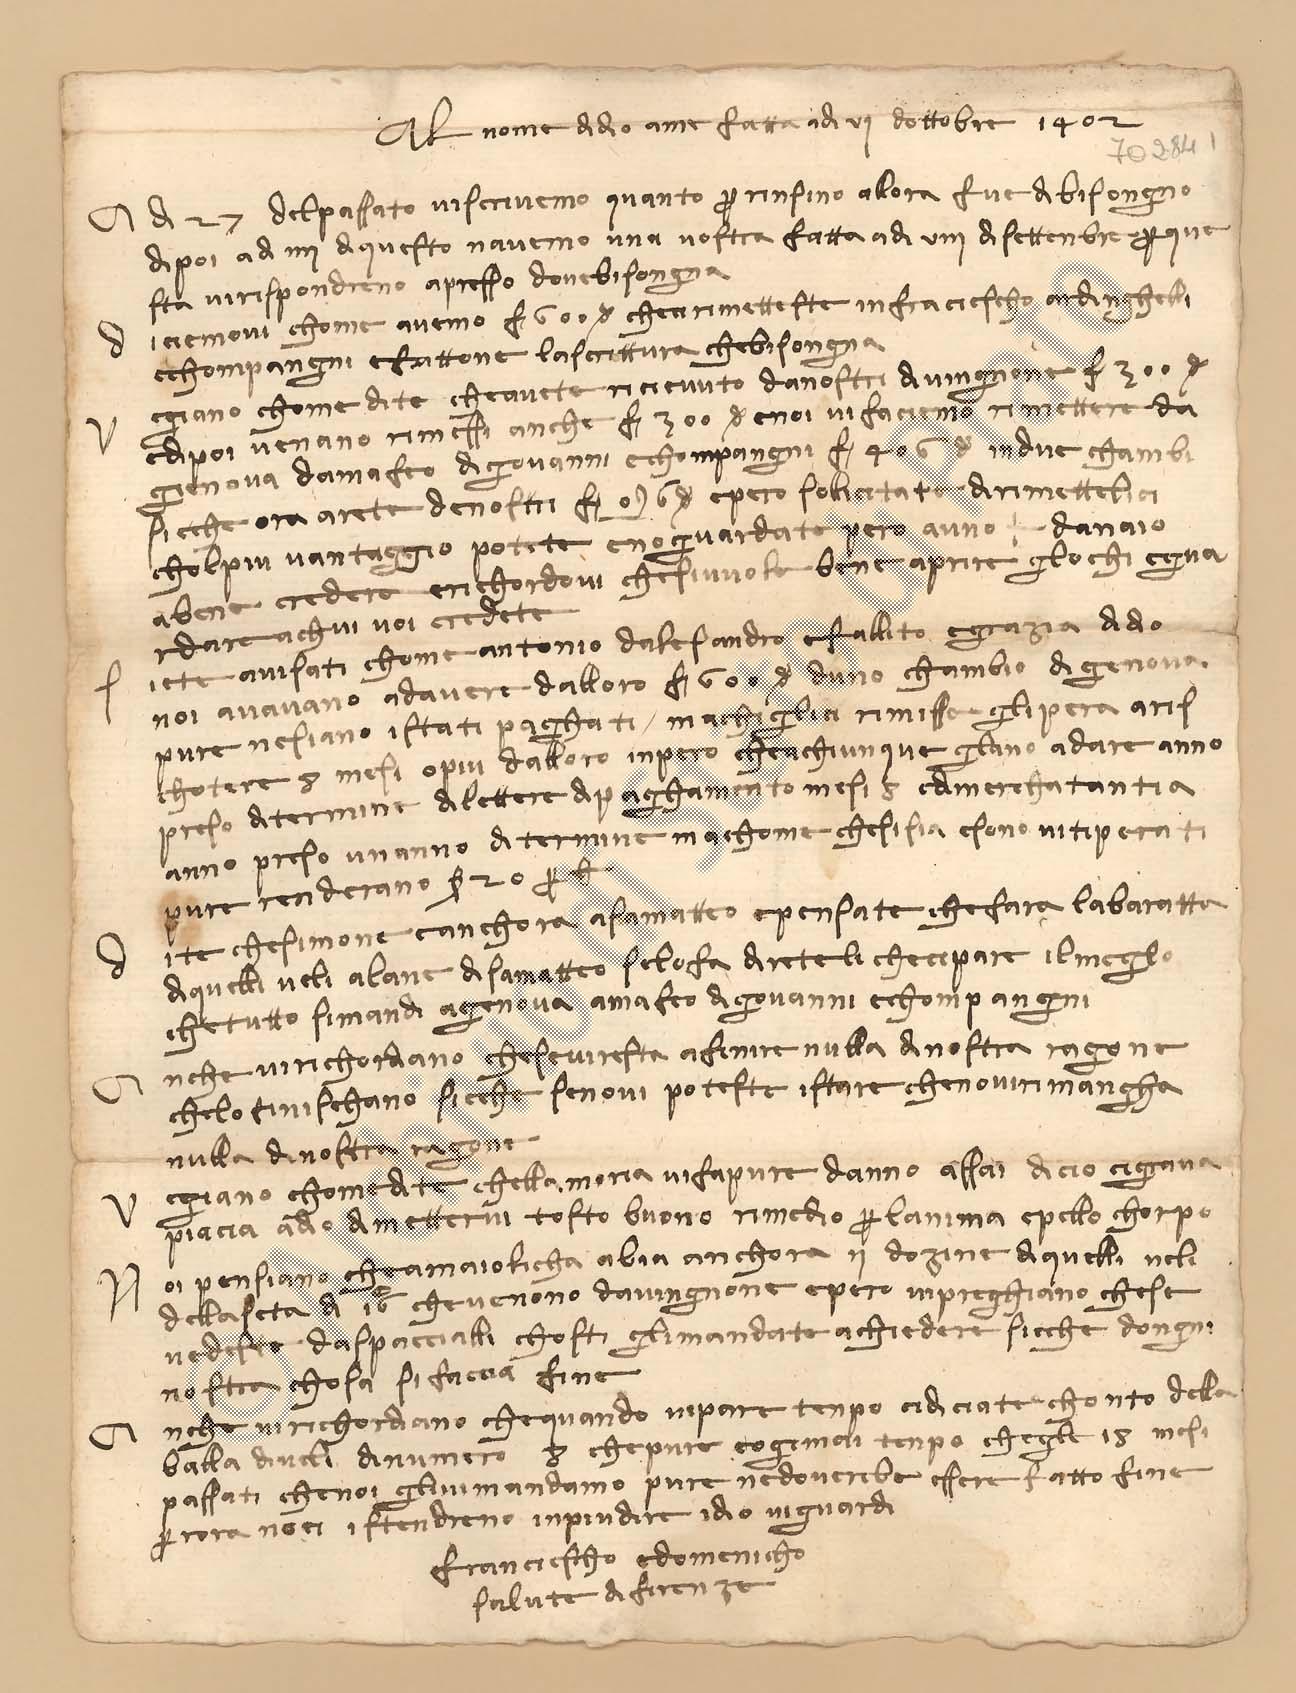 Al nome di dio ame fatta adi vj dottobre 1402
70284
A di 27 delpassato viscrivemo quanto per rinsino allora fue di bisongno
dipoi adi iiij di questo navemo una vostra fatta adi viiij di settenbre per que
sta virispondreno apresso dove bisongna
D iciemovi chome avemo f 600 d checi rimetteste in fraciescho ardinghelli
echompangni e fattone lascrittura chebisongna
V egiano chome dite cheavete ricievuto danostri davingnone f 300 d
edipoi venano rimessi anche f 300 d enoi vi faciemo rimettere da
gienova damafeo di giovanni echompangni f 406 d indue chambi
sicche ora arete denostri f d epero solicitate dirimetteloci
cholpiu vantaggio potete enoguardate pero auno danaio
abene credere erichordovi chesivuole bene aprire glochi egua
rdare achui voi credete
S iete avisati chome antonio dalesandro e fallito egrazia didio
noi avavano adavere dalloro f 600 d duno chambio digenova
pure nesiano istati paghati / machiglici rimisse glipera aris
chotere 8 mesi opiu dalloro inpero cheachiunque glano adare anno
preso ditermine dilettere dipaghamento mesi 8 edimerchatantia
anno preso unanno ditermine machome chesisia esono vitiperati
pure renderano 20 per c
D ite chesimone eanchora asamatteo epensate chefara labaratta
diquelli veli alane disamatteo selofa direteli checipare ilmeglo
chetutto simandi agenova amafeo digiovanni echompangni
A nche virichordiano cheseviresta afinire nulla dinostra ragone
chelo finischano sicche senovi poteste istare chenovirimangha
nulla dinostra ragone
V egiano chomedite chella moria vifapure danno assai dicio cigrava
piacia adio dimettervi tosto buono rimedio per lanima epello chorpo
N oi pensiano cheamaiolicha abia anchora ij dozine diquelli veli
dellaseta di 16 chevenono davingnone epero vipreghiano chese
vedeste daspaccialli chosti glimandate achiedere sicche dongni
nostra chosa sifaccia fine
A nche virichordiano chequando vipare tenpo cidiciate chonto della
balla diveli dinumero 8 chepure eogimai tenpo chegle 18 mesi
passati chenoi glivimandamo pure nedoverebe essere fatto fine
per rora noci istendreno inpiudire idio viguardi
franciescho edomenicho
salute difirenze